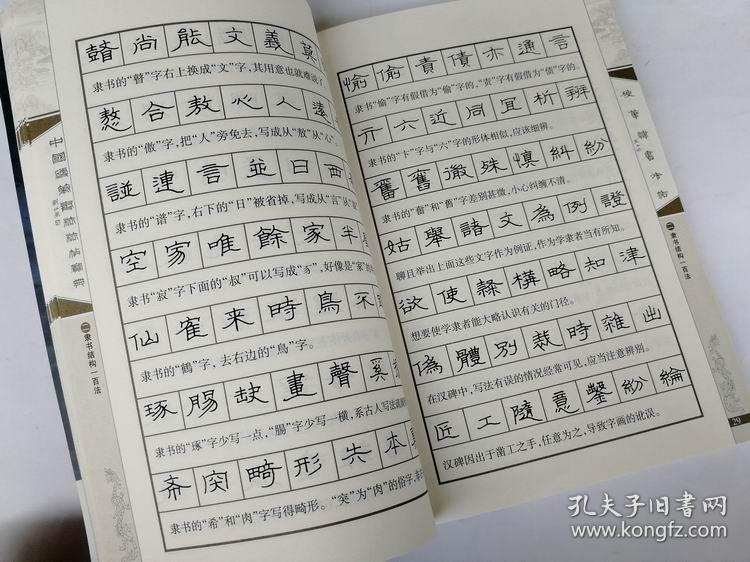 瞽尚能文義莫
隶书的“瞽”字右上换成“文”字,其用意也就难说了
憨合敖心人遠
隶书的“傲”字,把“人”旁免去,写成从“敖”从“心”。
諩連言並日西
隶书的“谱”字,右下的“日”被省掉,写成从“言”从
空家唯餘家半
隶书“寂”字下面的“叔”可以写成“豸”,好像是“家”的
仙寉来時鳥不
隶书的“鶴”字,去右边的“鳥”字。
琢腸缺畫聲奚
隶书的“琢”字少写一点,“腸”字少写一横,系古人写法疏漏
斎突畸形失本真
隶书的“希”和“肉”字写得畸形。“突”为“肉”的俗字,
愉偷責債亦通言
隶书“愉”字有假借为“偷”字的,“责”字有假借为“债”字的。
亓六近同宜析辨
隶书的“卞”字与“六”字的形体相似,应该细辨。
奮舊微殊慎糾紛
隶书的“奮”和“舊”字差别甚微,小心纠缠不清。
姑舉諸文為例證
聊且举出上面这些文字作为例证,作为学隶者当有所知。
欲使隸構略知津
想要使学隶者能大略认识有关的门径。
偽體別裁時雜出
在汉碑中,写法有误的情况经常可见,应当注意辨别。
匠工隨意鑿紛綸
汉碑因出于凿工之手,任意为之,导致字画的讹误。
隶书结构一百法
隶书结构一百法
29
孔夫子旧书网
www.kongfz.com